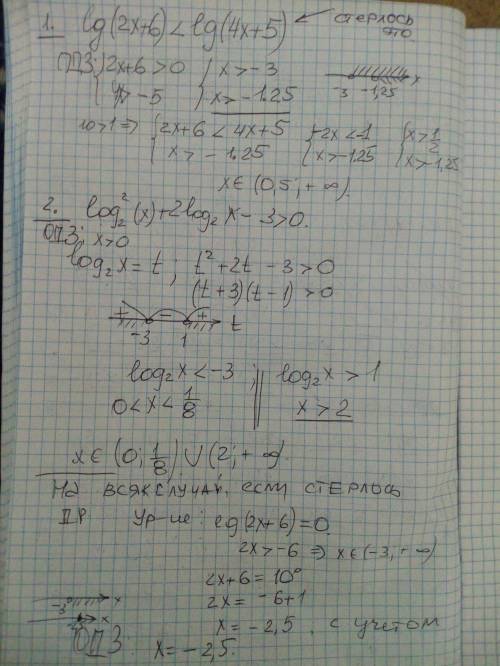 1. lg(2x+6) < lg(4x+5) ← СТЕРЛОСЬ
ЭТО
ОДЗ: { 2x+6>0 { x>-3
{ 4x>-5 { x>-1.25
-3 -1,25 x
10>1 ⇒ { 2x+6 < 4x+5 { -2x<-1 { x>1/2
{ x>-1.25 { x>-1,25 { x>-1,25
x∈(0,5; +∞).
2. log₂²(x)+2log₂x-3>0.
ОДЗ: x>0
log₂x=t; t²+2t-3>0
(t+3)(t-1)>0
+ - + t
-3 1
log₂x<-3; log₂x>1
0<x<1/8 x>2
x∈(0; 1/8)∪(2; +∞).
НА ВСЯК СЛУЧАЙ, ЕСЛИ СТЕРЛОСЬ
ДР Ур-ие: lg(2x+6)=0.
2x>-6 ⇒ x∈(-3; +∞)
2x+6=10⁰
-3 x
2x=-6+1
x
x=-2,5, с учетом
ОДЗ: x=-2,5.